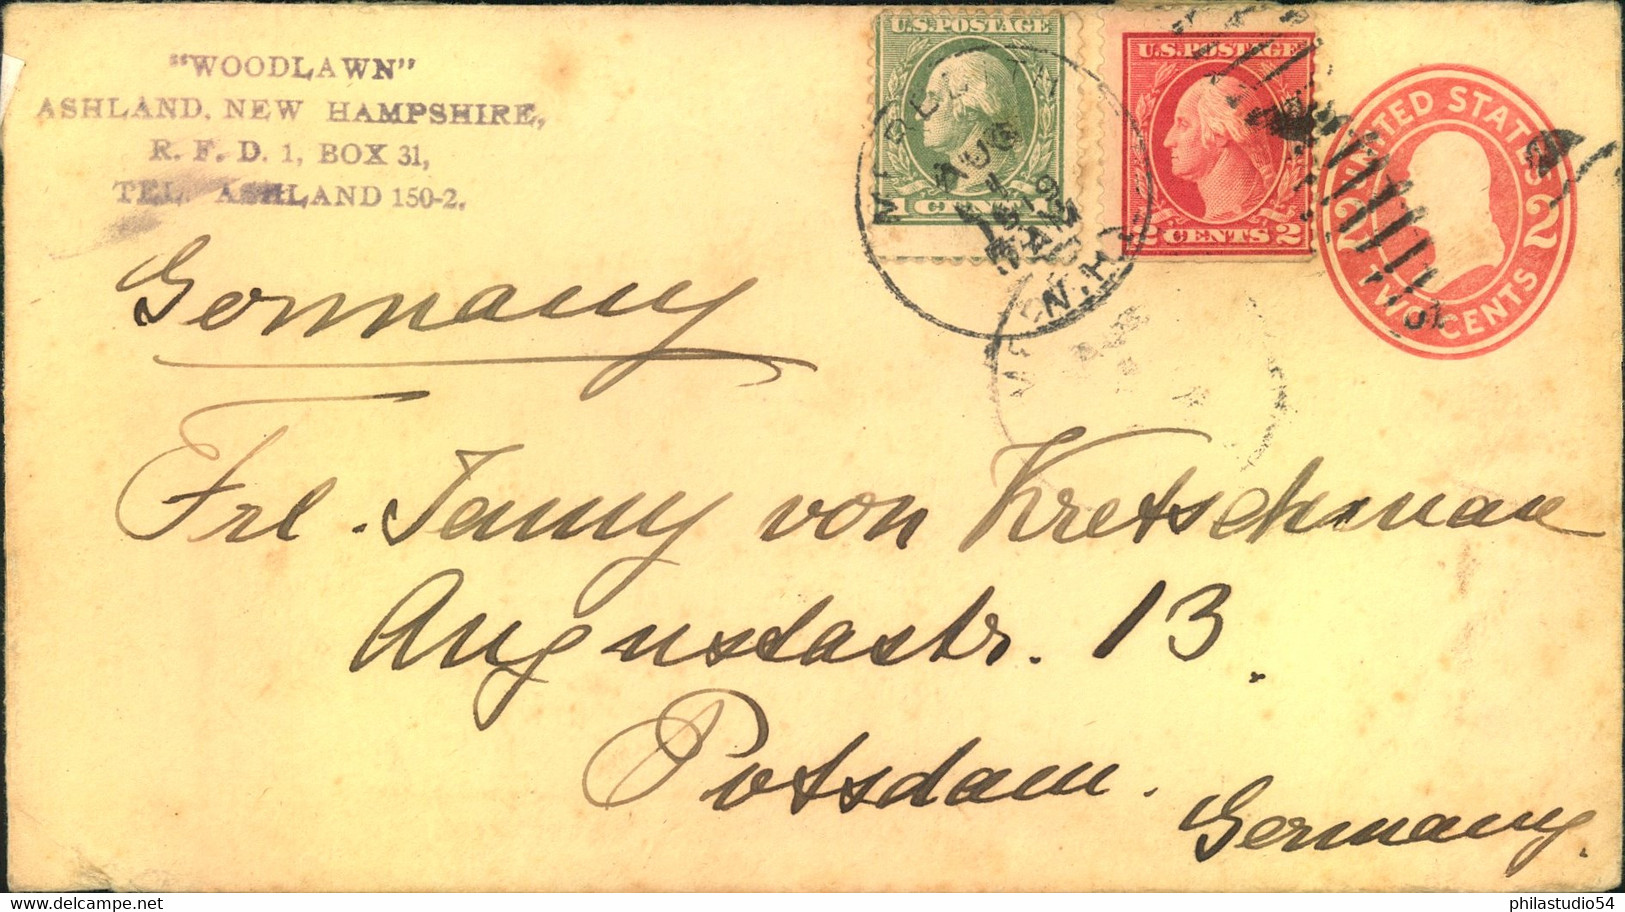 "WOODLAWN"
ASHLAND, NEW HAMPSHIRE,
R. F. D. 1, BOX 31,
TEL. ASHLAND 150-2.
U.S. POSTAGE
1 CENT 1
U.S. POSTAGE
2 CENTS 2
UNITED STATES
2 2
TWO CENTS
AUG
AM
N.H.
Germany
Frl. Jenny von Kretschman
Augustastr. 13.
Potsdam.
Germany.
philastudio54